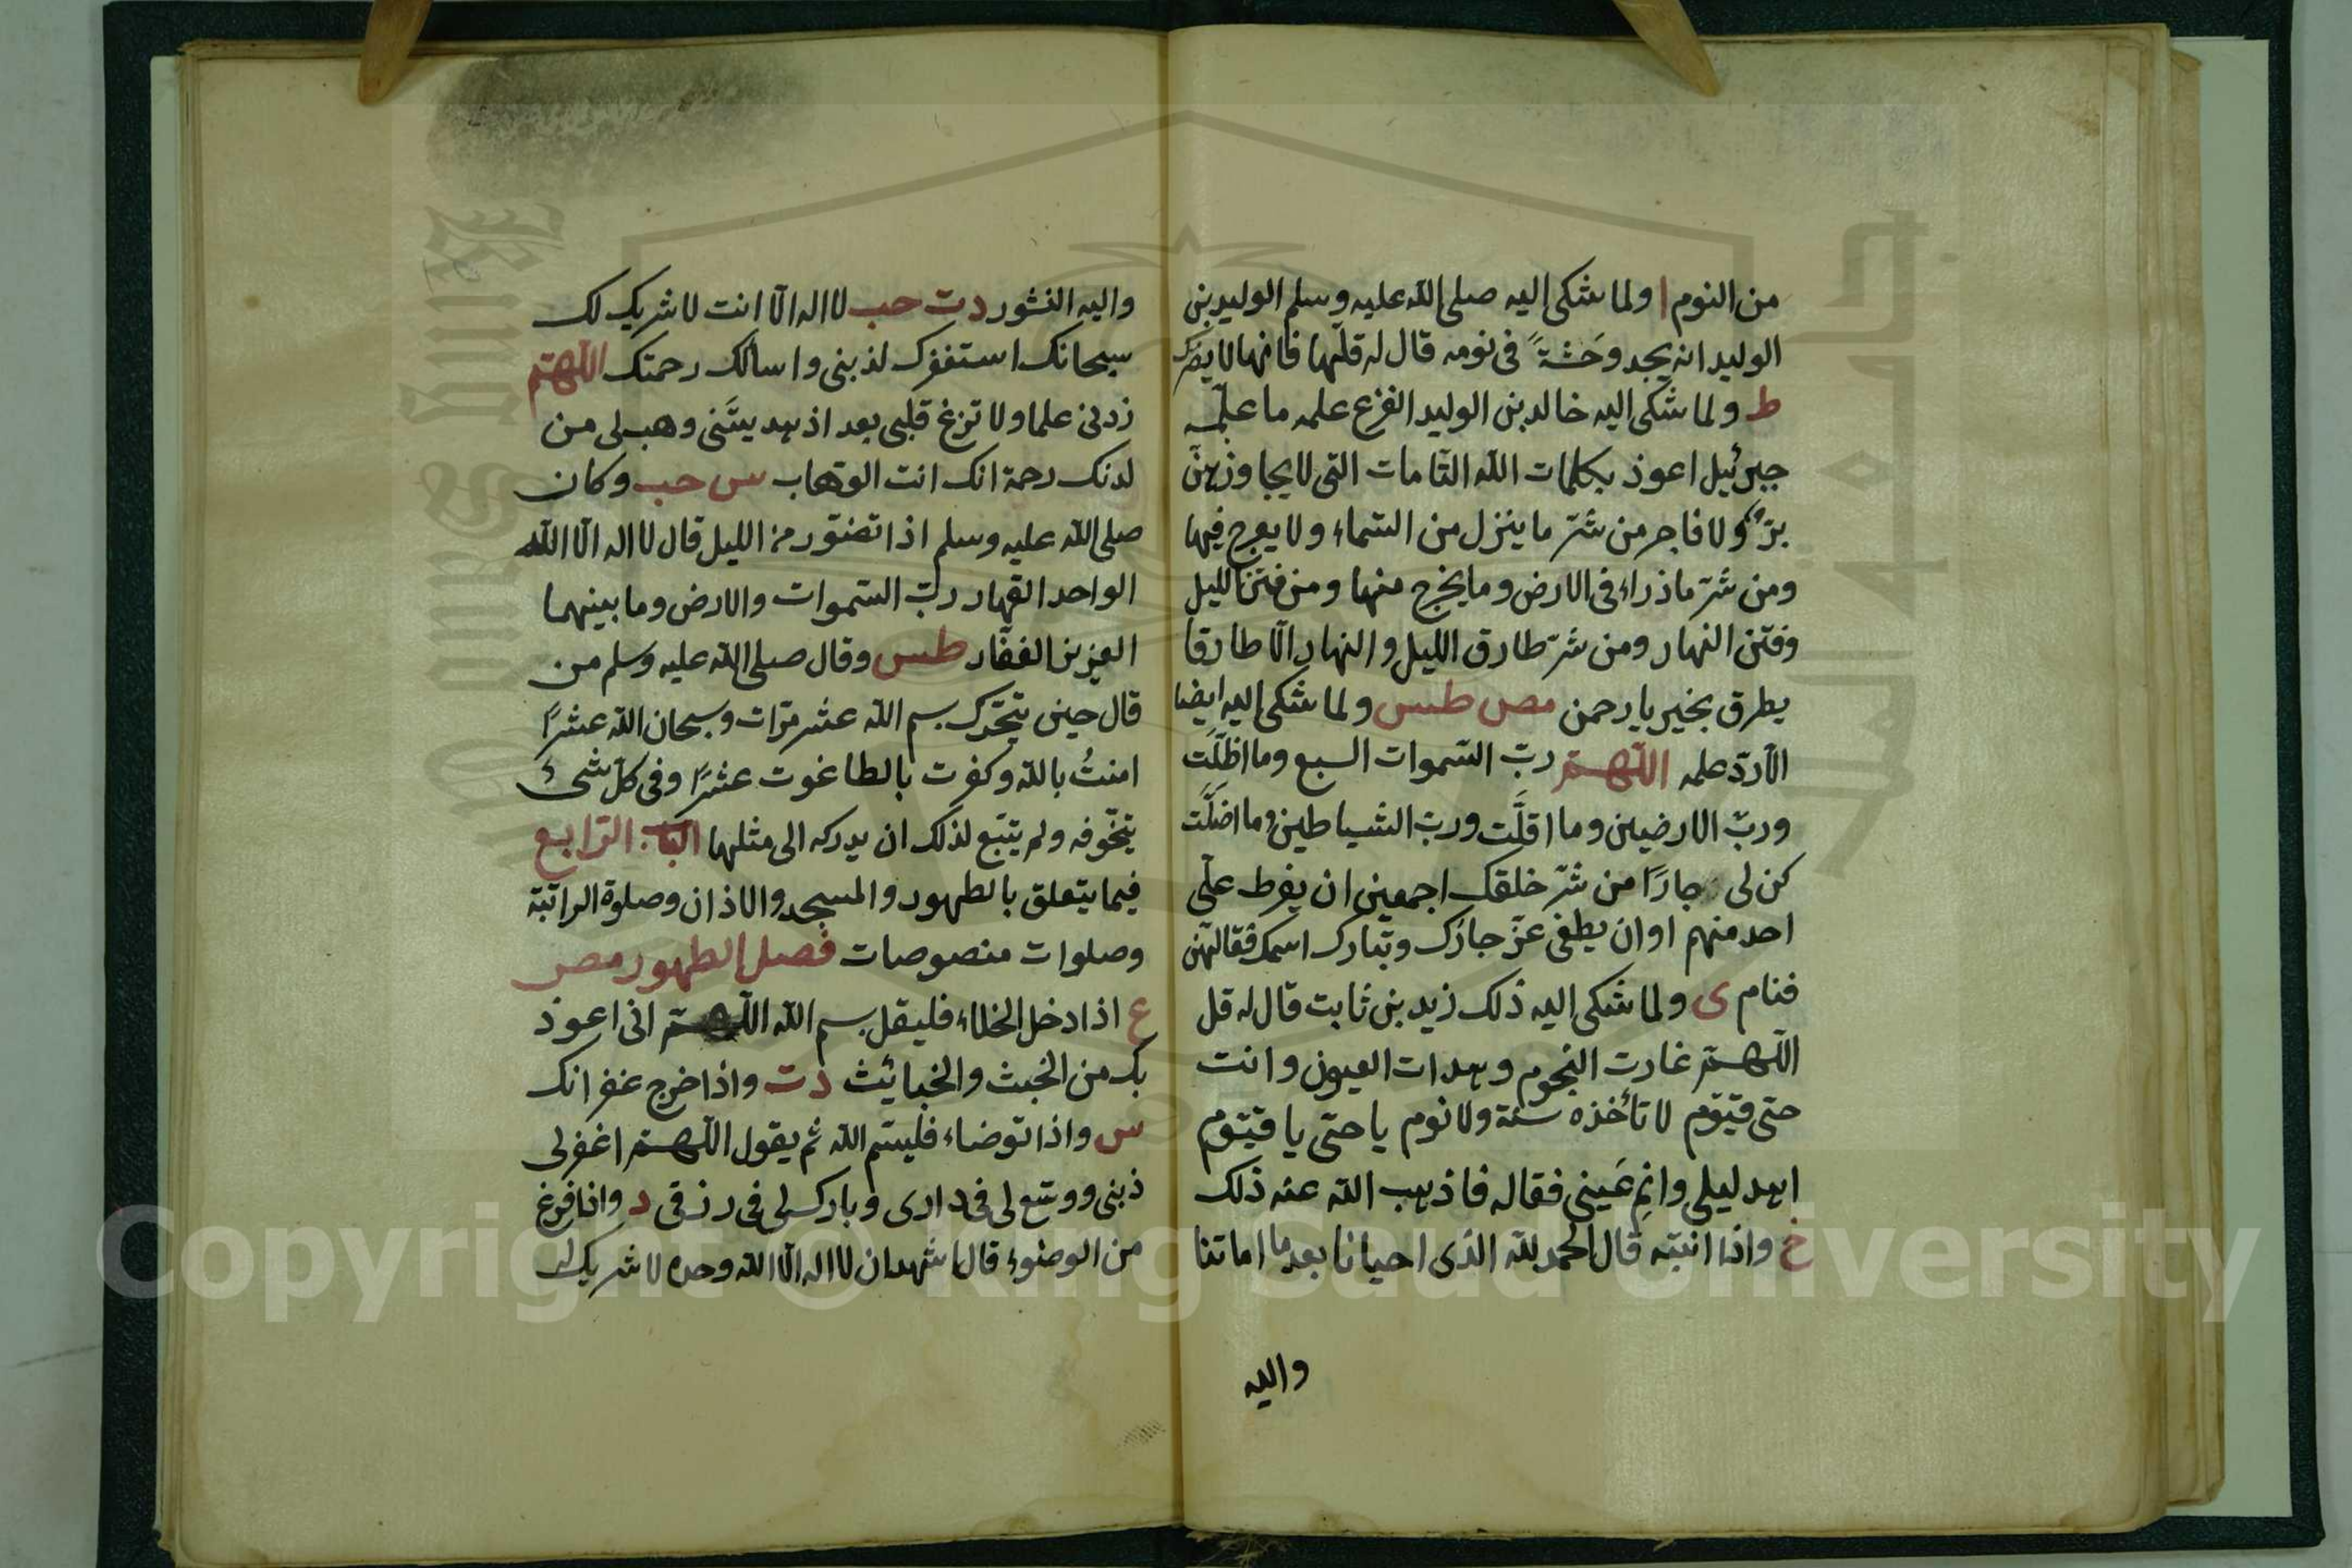 من النوم ا ولما شكى اليه صلى الله عليه وسلم الوليد بن
الوليد انه يجد وَحَشةً في نومه قال له قلها فانها لا يضرك
ط ولما شكى اليه خالد بن الوليد الفزع علمه ما علّمه
جبرئيل اعوذ بكلمات الله التّامات التى لا يجاوزهنّ
برّ ولا فاجر من شرّ ما ينزل من السّماء ولا يعرج فيها
ومن شرّ ما ذراء فى الارض وما يخرج منها ومن فتن الليل
وفتن النهار ومن شرّ طارق الليل والنهار الّا طارقا
يطرق بخير يا رحمن مص طس ولما شكى اليه ايضا
الارق علمه اللّهمّ ربّ السّموات السبع وما اظلّت
وربّ الارضين وما اقلَّت وربّ الشياطين وما اضلَّت
كن لى جارًا من شرّ خلقك اجمعين ان يفرط علىّ
احد منهم او ان يطغى عزّ جارك وتبارك اسمك فقالهنّ
فنام ى ولما شكى اليه ذلك زيد بن ثابت قال له قل
اللّهمّ غارت النجوم وهدات العيون وانت
حىّ قيّوم لا تأخذه سنة ولا نوم يا حىّ يا قيّوم
اهد ليلى وانِم عَينى فقاله فاذهب الله عنه ذلك
خ واذا انتبه قال الحمد لله الذى احيانا بعد ما اماتنا
واليه
واليه النشور دت حب لا اله الّا انت لا شريك لك
سبحانك استغفرك لذنبى واسألك رحمتك اللّهمّ
زدنى علما ولا تزغ قلبى بعد اذ هديتَنى وهب لى من
لدنك رحمة انك انت الوهّاب س حب وكان
صلى الله عليه وسلم اذا تضوّر من الليل قال لا اله الّا الله
الواحد القهار ربّ السّموات والارض وما بينهما
العزيز الغفّار طس وقال صلى الله عليه وسلم من
قال حين يتحرّك بسم الله عشر مرّات وسبحان الله عشرًا
امنتُ بالله وكفرت بالطاغوت عشرًا وفى كلّ شىء
يتخوّفه ولم يتبّع لذلك ان يدركه الى مثلها الباب الرّابع
فيما يتعلق بالطهور والمسجد والاذان وصلوة الراتبة
وصلوات منصوصات فصل الطهور مص
ع اذا دخل الخلاء فليقل بسم الله اللّهمّ انى اعوذ
بك من الخبث والخبائث دت واذا خرج غفرانك
س واذا توضاء فليسمّ الله ثم يقول اللّهمّ اغفر لى
ذنبى ووسّع لى فى دارى وبارك لى فى رزقى د واذا فرغ
من الوضوء قال اشهد ان لا اله الّا الله وحده لا شريك له
Copyright © King Saud University